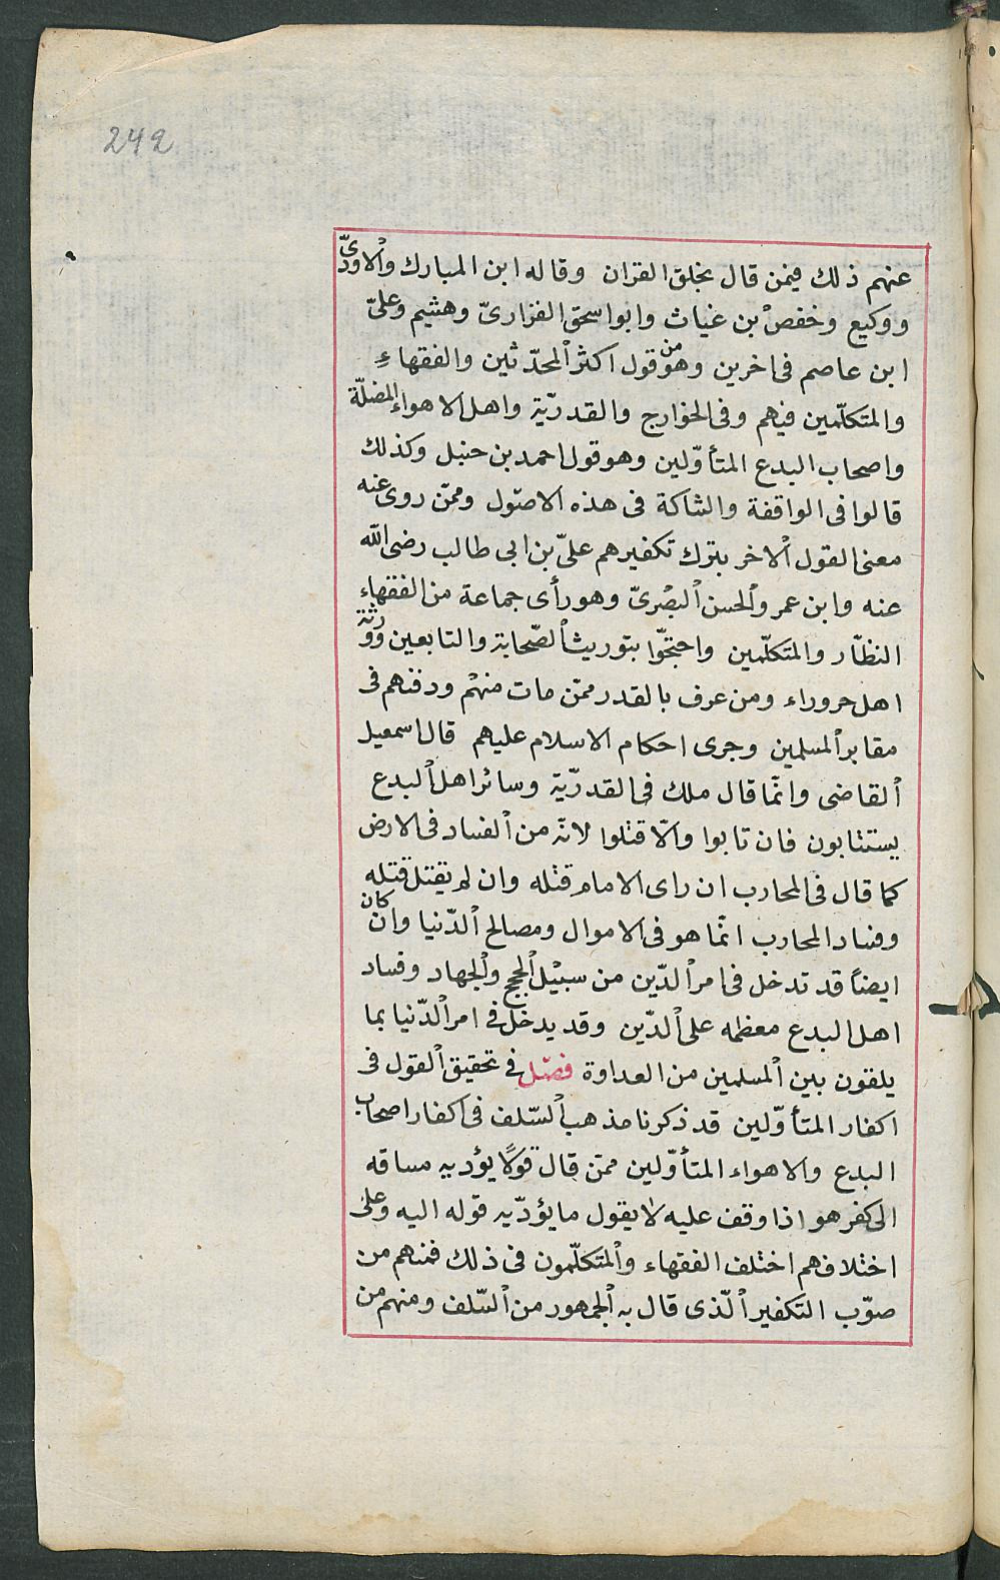 242
عنهم ذلك فيمن قال بخلق القران وقاله ابن المبارك والاودىّ
ووكيع وحفص بن غياث وابواسحق الفزارىّ وهشيم وعلىّ
ابن عاصم فى اخرين وهو من قول اكثر المحدّثين والفقهاء
والمتكلّمين فيهم وفى الخوارج والقدريّة واهل الاهواء المضلّة
واصحاب البدع المتأوّلين وهو قول احمد بن حنبل وكذلك
قالوا فى الواقفة والشاكة فى هذه الاصول وممّن روى عنه
معنى القول الاخر بترك تكفيرهم علىّ بن ابى طالب رضى الله
عنه وابن عمر والحسن البصرىّ وهو رأى جماعة من الفقهاء
النظّار والمتكلّمين واحتجّوا بتوريث الصّحابة والتابعين ورثة
اهل حروراء ومن عرف بالقدر ممّن مات منهم ودفنهم فى
مقابر المسلمين وجرى احكام الاسلام عليهم قال اسمعيل
القاضى وانّما قال ملك فى القدريّة وسائر اهل البدع
يستتابون فان تابوا والّا قتلوا لانّه من الفساد فى الارض
كما قال فى المحارب ان راى الامام قتله وان لم يقتل قتله
وفساد المحارب انّما هو فى الاموال ومصالح الدّنيا وان كان
ايضاً قد تدخل فى امر الدّين من سبيل الحج والجهاد وفساد
اهل البدع معظمه على الدّين وقد يدخل فى امر الدّنيا بما
يلقون بين المسلمين من العداوة فصل فى تحقيق القول فى
اكفار المتأوّلين قد ذكرنا مذهب السّلف فى اكفار اصحاب
البدع والاهواء المتأوّلين ممّن قال قولاً يؤديه مساقه
الى كفر هو اذا وقف عليه لا يقول ما يؤدّيه قوله اليه وعلى
اختلافهم اختلف الفقهاء والمتكلّمون فى ذلك فمنهم من
صوّب التكفير الّذى قال به الجمهور من السّلف ومنهم من